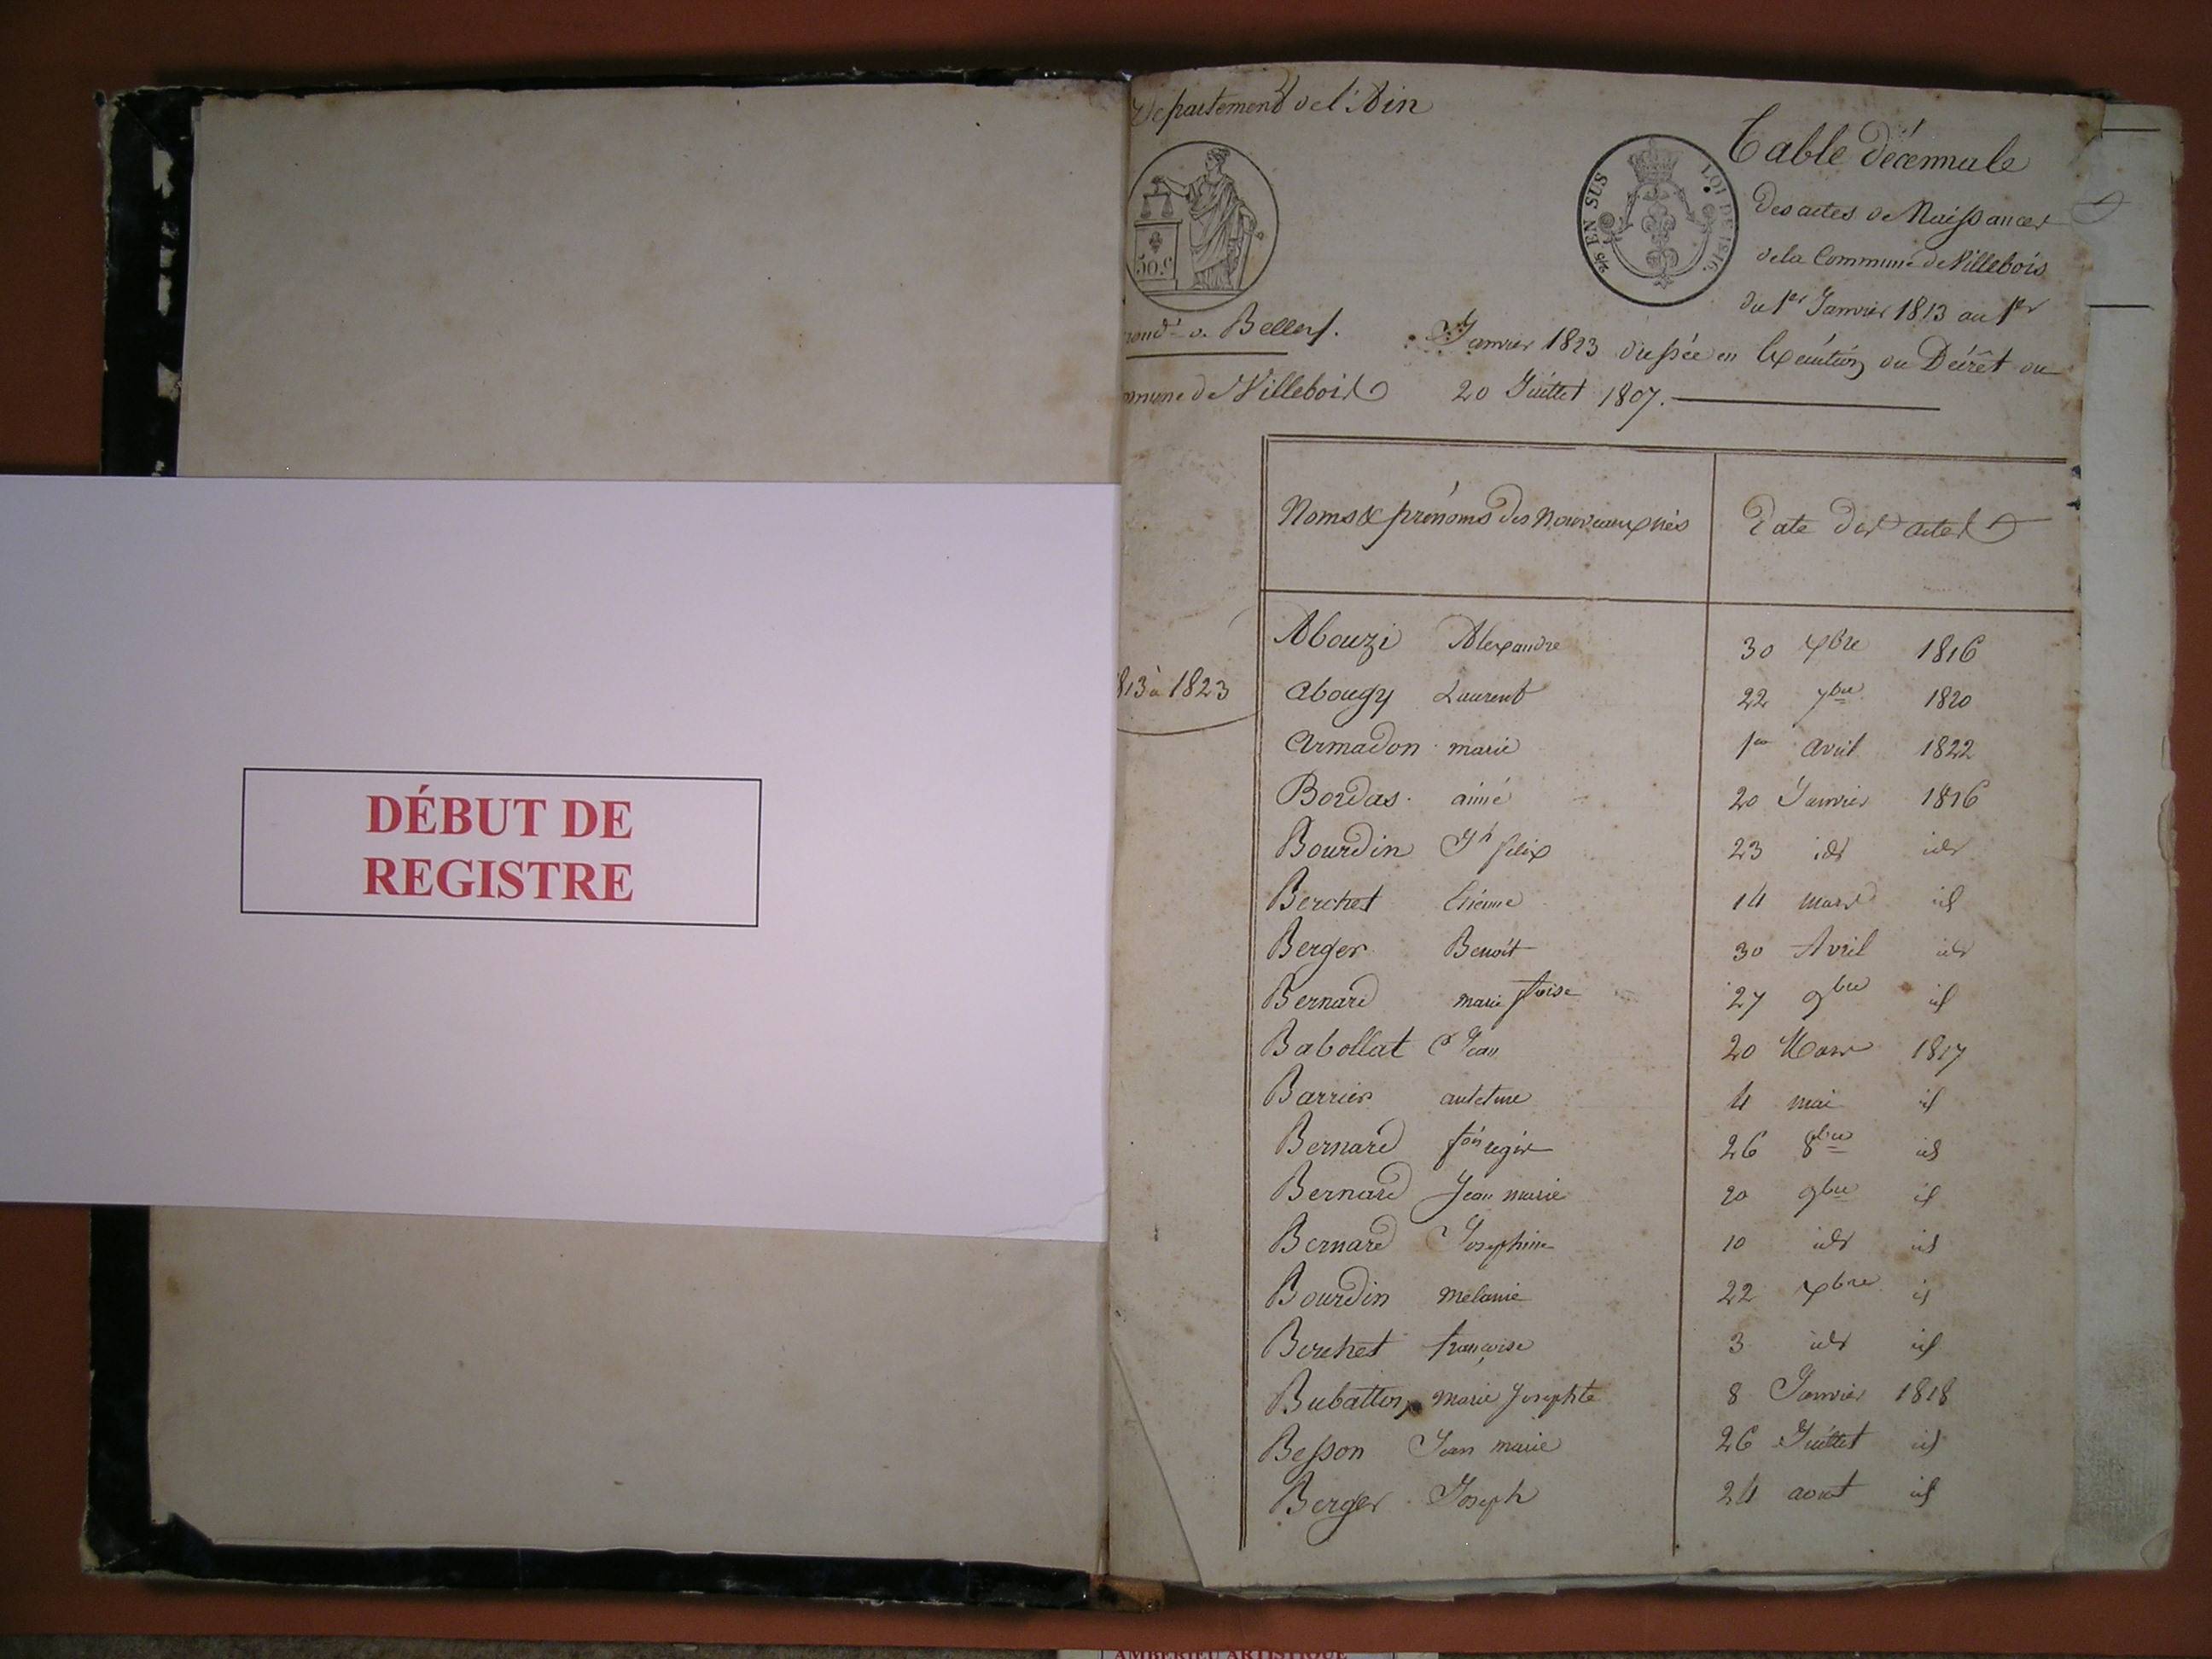 DÉBUT DE
REGISTRE
Département de l'Ain
50.c
2/5 EN SUS LOI DE 1816.
Table décennale
des actes de Naissances
de la Commune de Villebois
du 1er Janvier 1813 au 1er
Janvier 1823 dressée en Exécution du Décrêt du
20 Juillet 1807.
v. Belley.
mmune de Villebois
813 à 1823
Noms & prénoms des nouveaux nés Date des actes
Abouzi Alexandre 30 xbre 1816
Abougy Laurent 22 7bre 1820
Armadon marie 1er avril 1822
Bordas aimé 20 Janvier 1816
Bourdin Jh felix 23 id id
Berchet Etienne 14 mars id
Berger Benoit 30 Avril id
Bernard marie foise 27 9bre id
Babollat Jean 20 Mars 1817
Barrier anthelme 4 mai id
Bernard fois régis 26 8bre id
Bernard Jean marie 20 9bre id
Bernard Josephine 10 id id
Bourdin melanie 22 xbre id
Berchet françoise 3 id id
Bubatton marie Josephte 8 Janvier 1818
Besson Jean marie 26 Juillet id
Berger Joseph 24 aout id
AMBERIEU ARTISTIQUE